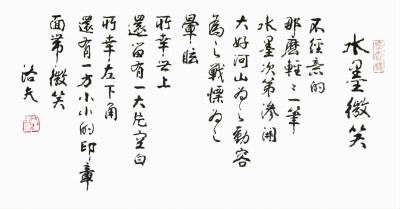 水墨微笑
不經意的
那麼輕々一筆
水墨次第滲開
大好河山為之動容
為之戰慄為之
暈眩
所幸世上
還留有一大片空白
所幸左下角
還有一方小小的印章
面帶微笑
洛夫